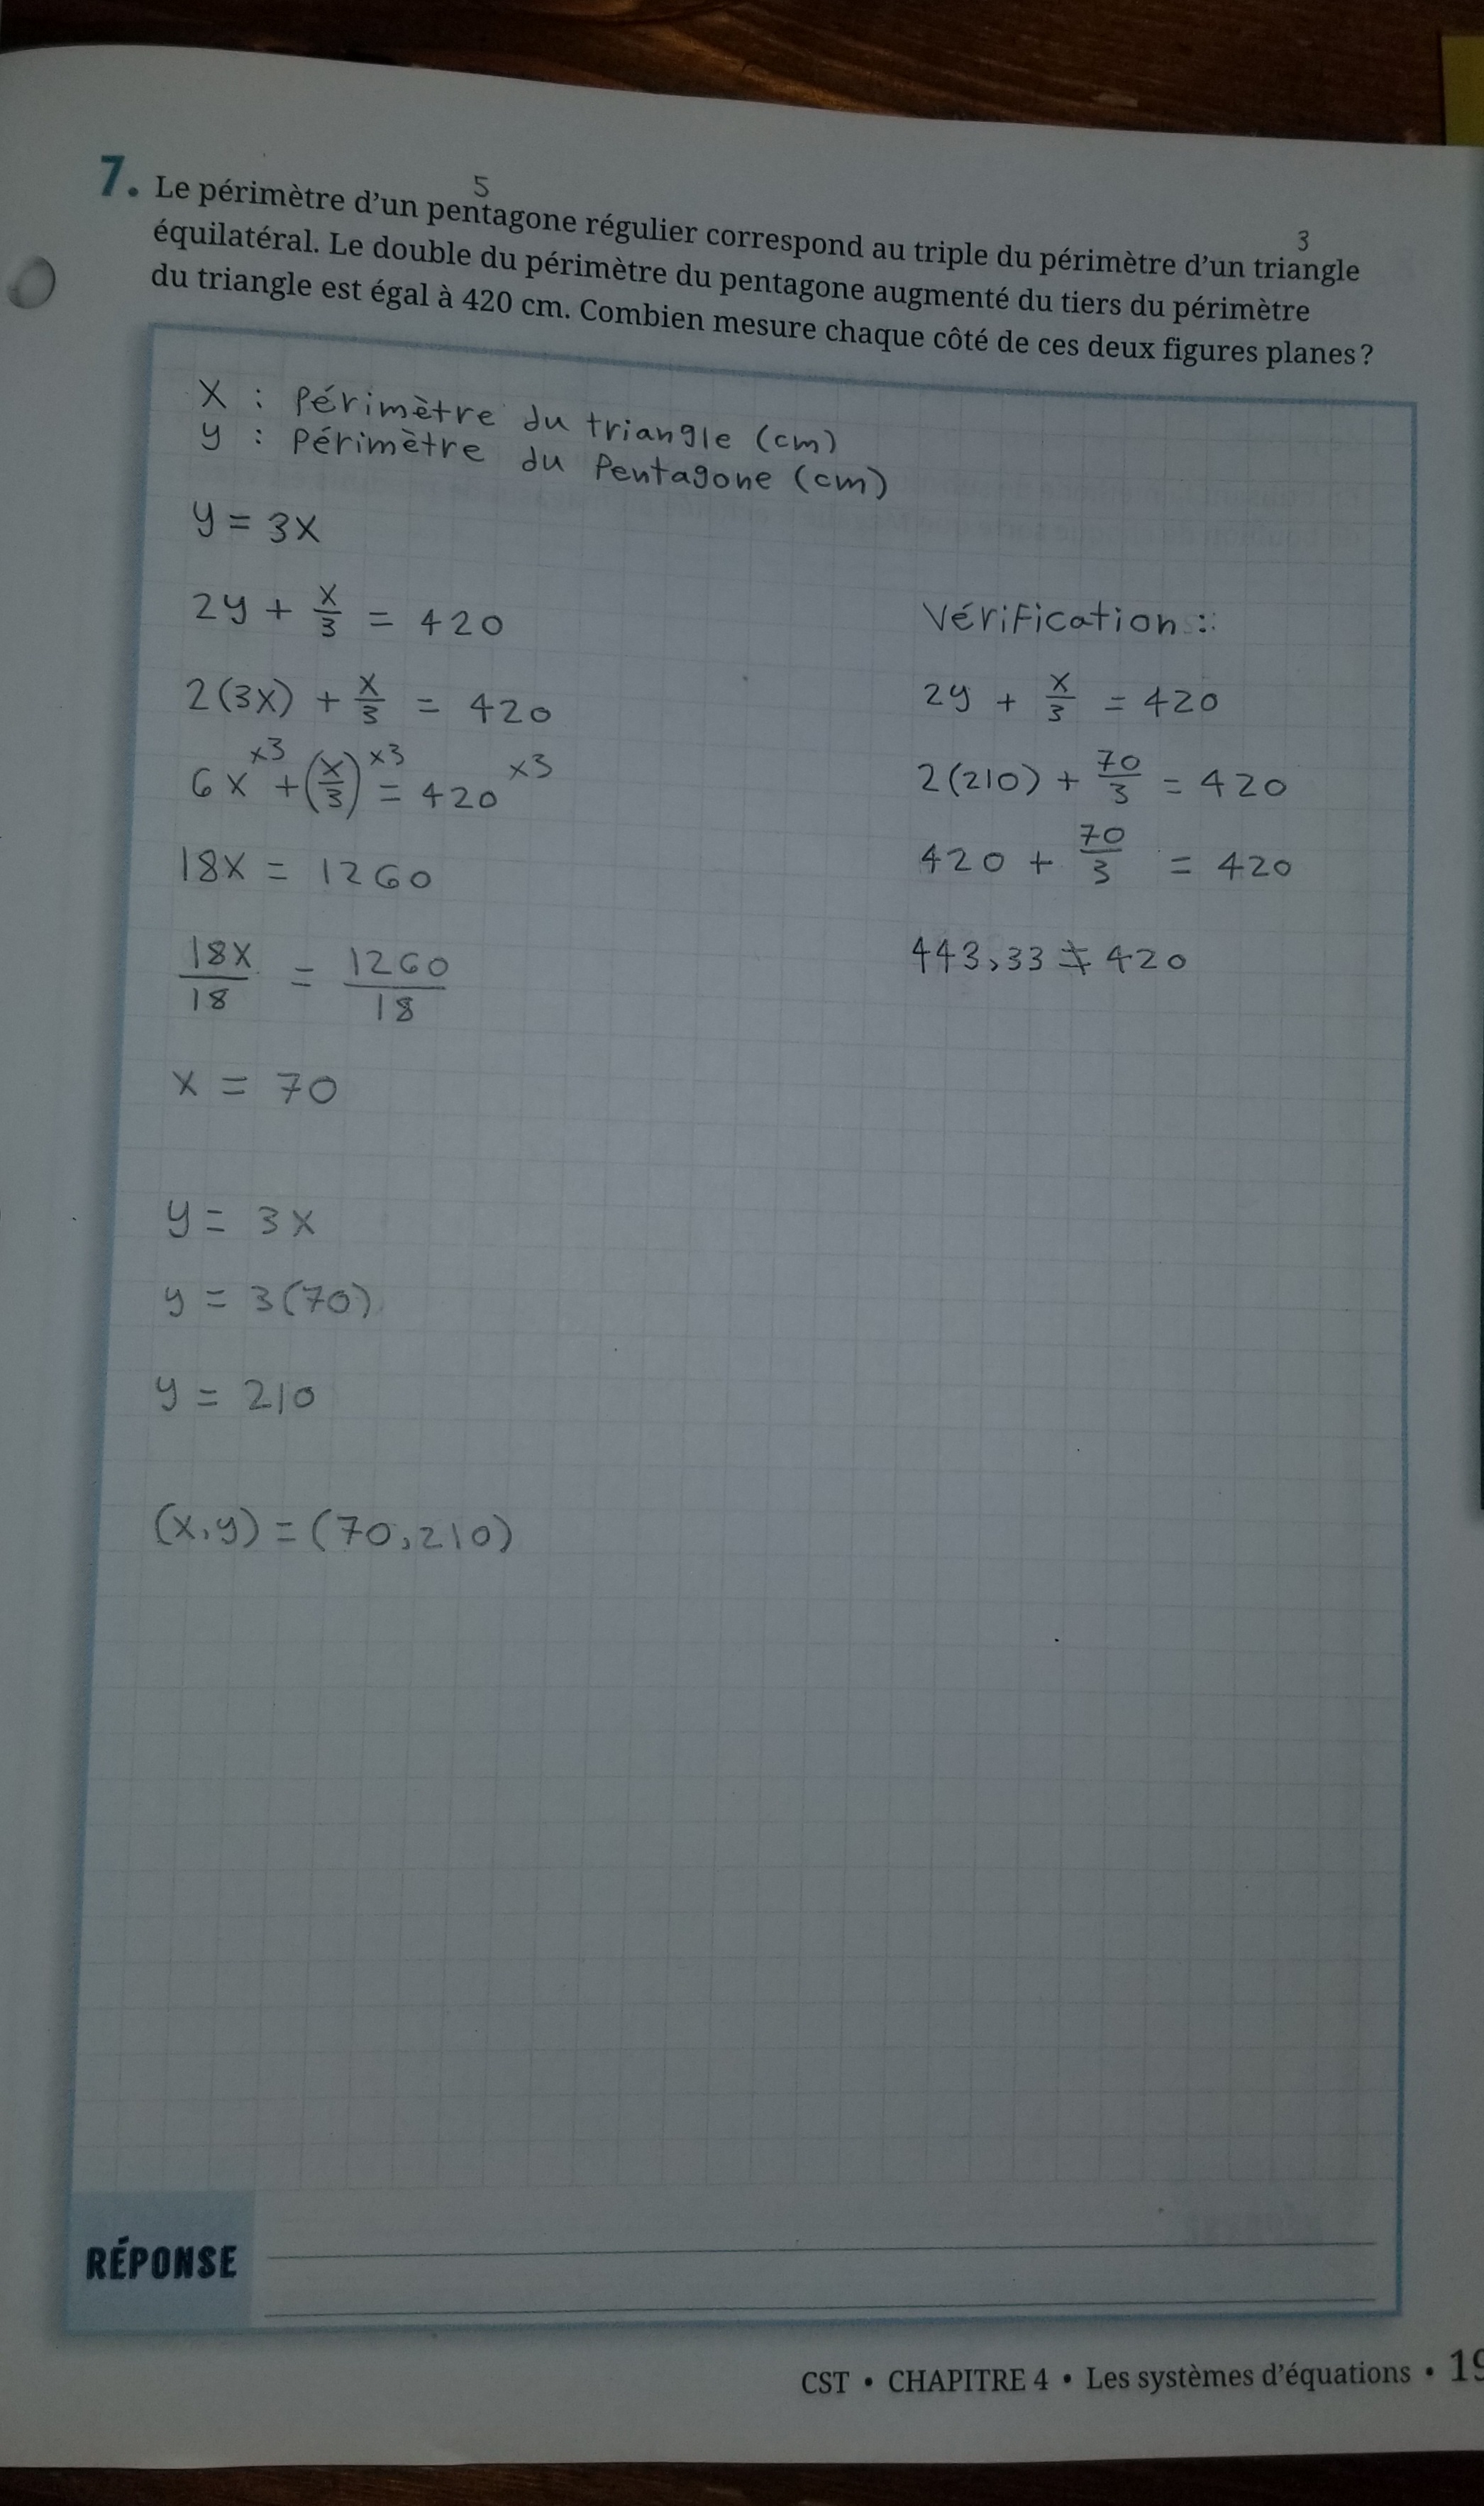 7. Le périmètre d'un pentagone régulier correspond au triple du périmètre d'un triangle
5
3
équilatéral. Le double du périmètre du pentagone augmenté du tiers du périmètre
du triangle est égal à 420 cm. Combien mesure chaque côté de ces deux figures planes ?
x : Périmètre du triangle (cm)
y : Périmètre du Pentagone (cm)
y = 3x
2y + x/3 = 420
2(3x) + x/3 = 420
6x ×3 + (x/3) ×3 = 420 ×3
18x = 1260
18x/18 = 1260/18
x = 70
y = 3x
y = 3(70)
y = 210
(x,y) = (70,210)
Vérification :
2y + x/3 = 420
2(210) + 70/3 = 420
420 + 70/3 = 420
443,33 ≠ 420
RÉPONSE
CST • CHAPITRE 4 • Les systèmes d'équations • 19